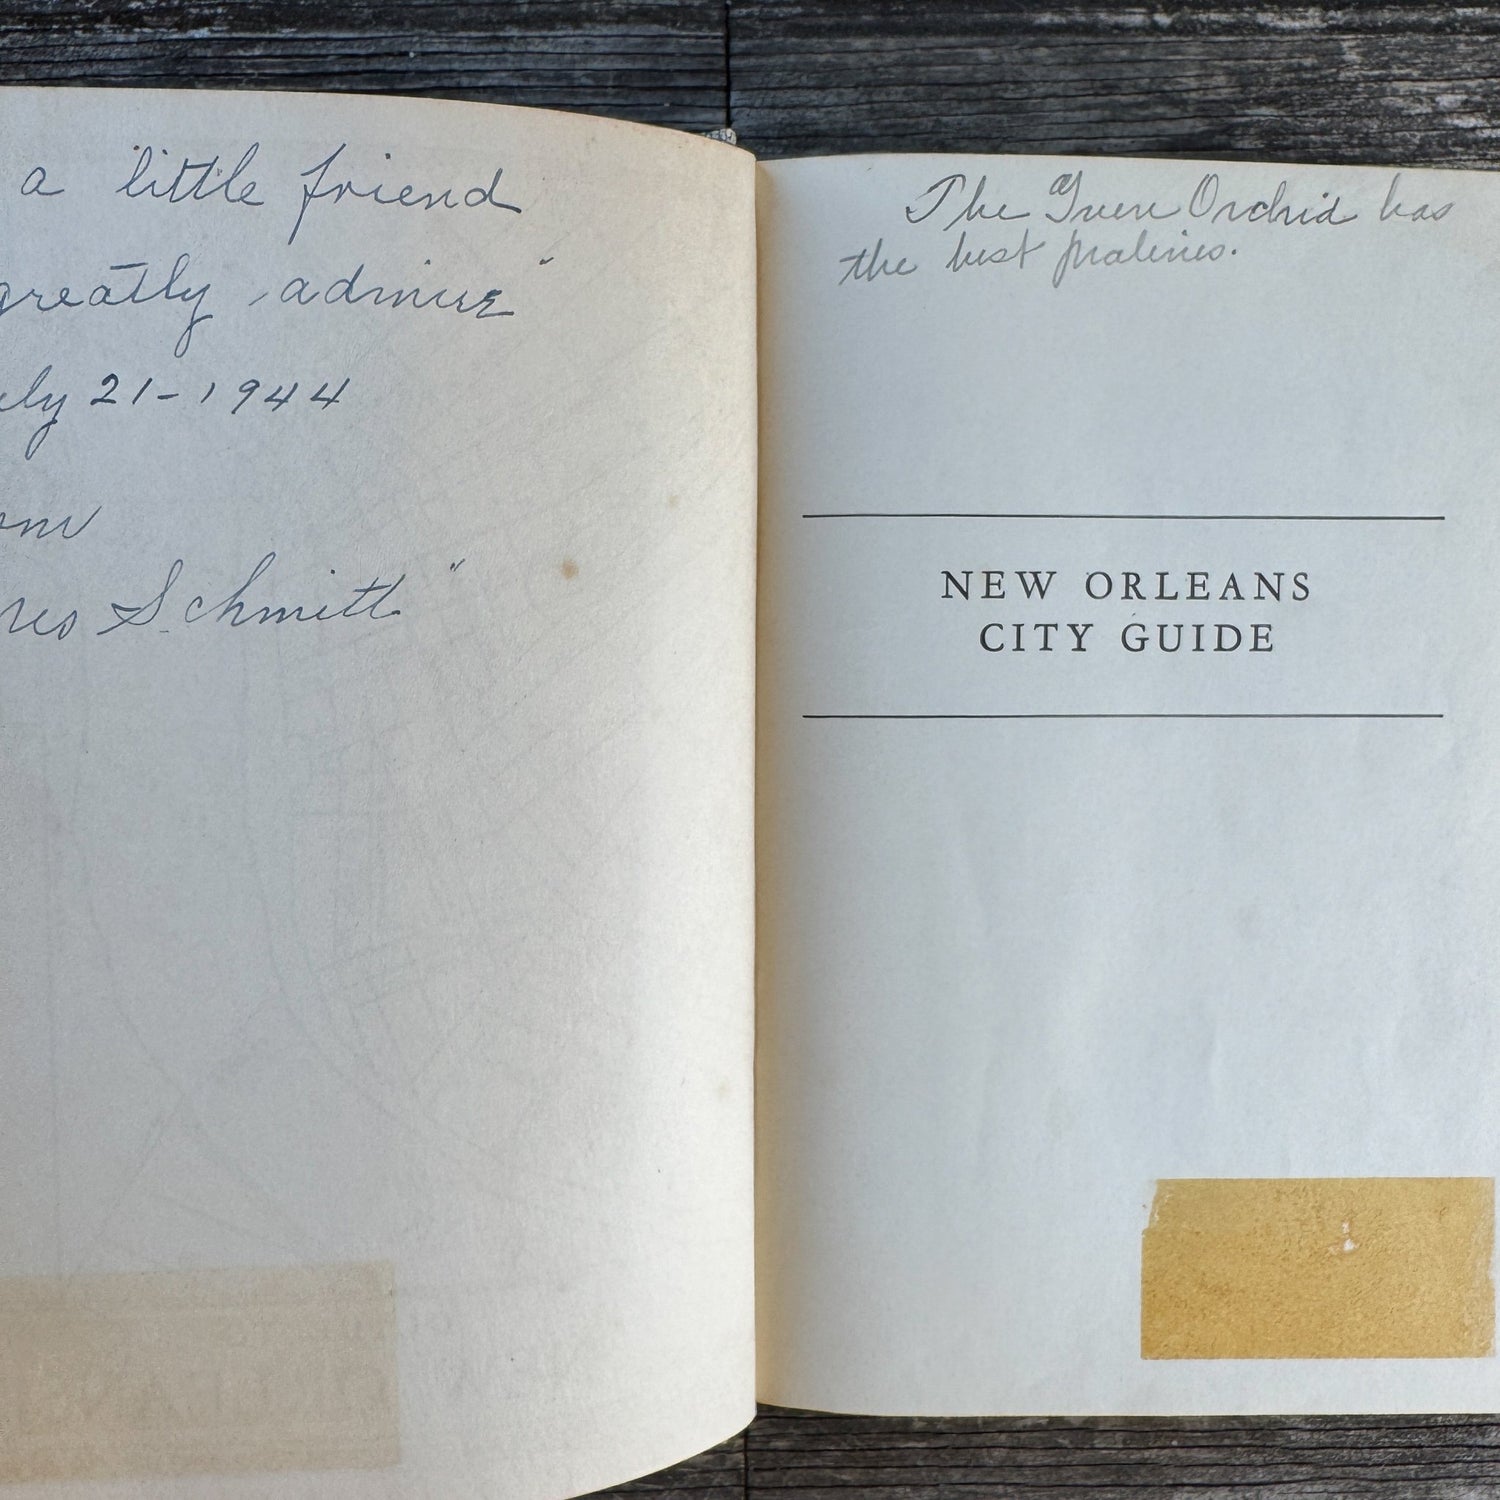 a little friend
greatly admire"
uly 21-1944
om
res Schmitt"
The Green Orchid has
the best pralines.
NEW ORLEANS
CITY GUIDE